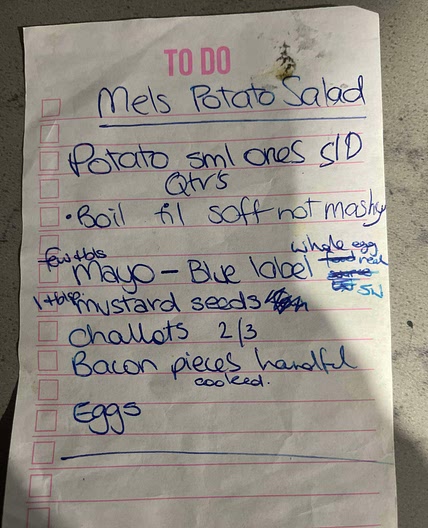 TO DO
Mels Potato Salad
Potato sml ones SID
Qtrs
• Boil til soft not mashy
few tbls whole egg
Mayo - Blue label
1 tblsp mustard seeds
challots 2/3
Bacon pieces handful
cooked.
Eggs